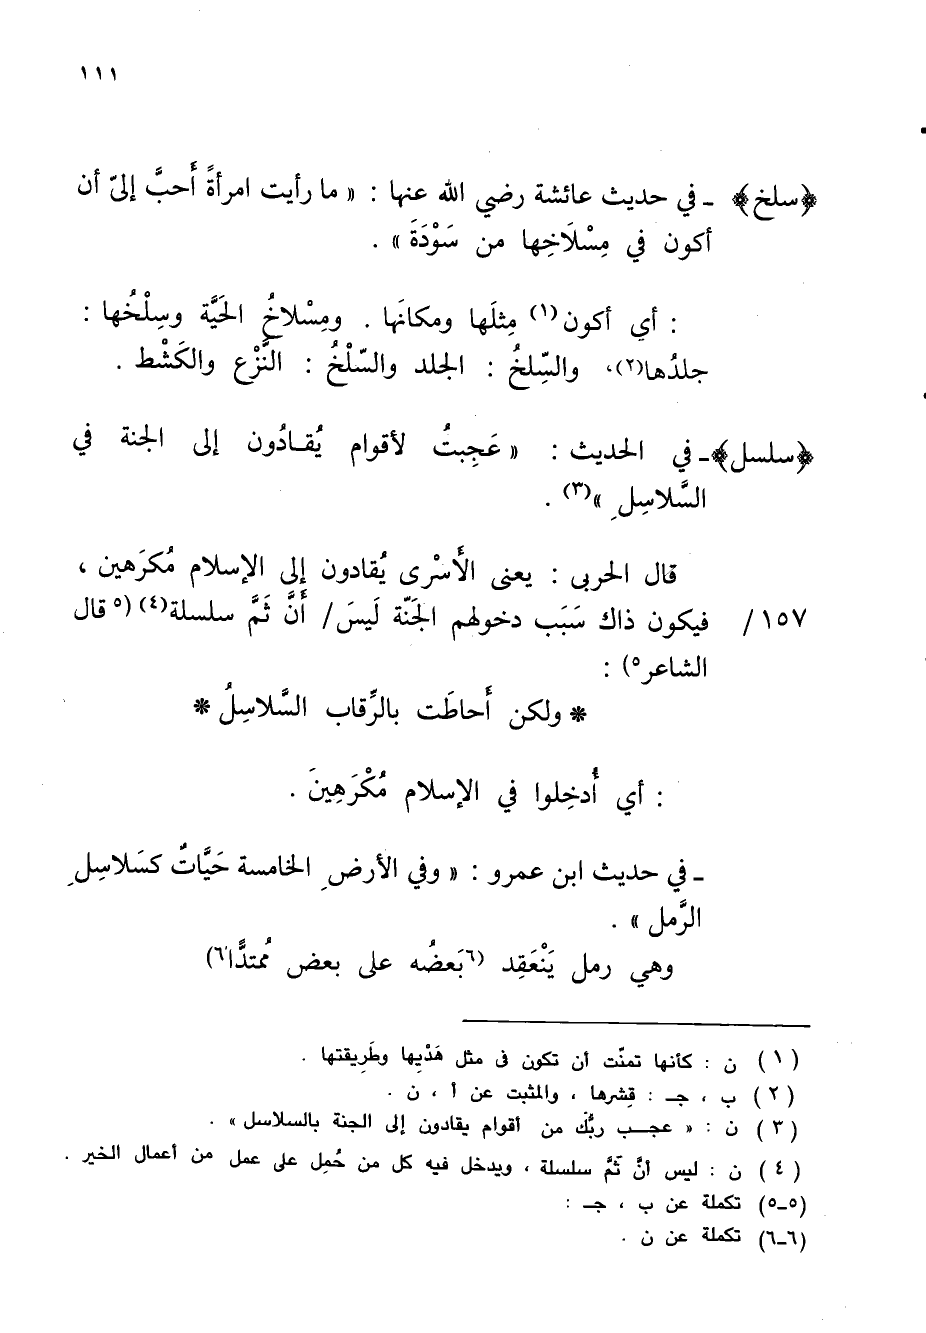 ١١١
﴿سلخ﴾ ـ في حديث عائشة رضي الله عنها : « ما رأيت امرأةً أَحبَّ إليّ أن
أكون في مِسْلَاخِها من سَوْدَةَ » .
: أي أكون(١) مِثلَها ومكانَها . ومِسْلاخُ الحَيَّة وسِلْخُها :
جلدُها(٢)، والسِّلخُ : الجلد والسَّلْخُ : النَّزْع والكَشْط .
﴿سلسل﴾ـ في الحديث : « عَجِبتُ لأقوام يُقـادُون إلى الجنة في
السَّلاسِلِ »(٣) .
قال الحربى : يعنى الأَسْرى يُقادون إلى الإسلام مُكرَهين ،
١٥٧/ فيكون ذاك سَبَب دخولهم الجَنّة لَيسَ/ أَنَّ ثَمَّ سلسلة(٤) (٥ قال
الشاعر٥) :
* ولكن أَحاطَت بالرِّقاب السَّلاسِلُ *
: أي أُدخِلوا في الإسلام مُكْرَهِينَ .
ـ في حديث ابن عمرو : « وفي الأرضِ الخامسة حَيَّاتٌ كسَلاسِلِ
الرَّمل » .
وهي رمل يَنْعَقِد (٦بَعضُه على بعض مُمتدًّا٦)
(١) ن : كأنها تمنّت أن تكون فى مثل هَدْيِها وطَرِيقتها .
(٢) ب ، جـ : قِشرها ، والمثبت عن أ ، ن .
(٣) ن : « عجـب ربُّك من أقوام يقادون إلى الجنة بالسلاسل » .
(٤) ن : ليس أنَّ ثَمَّ سلسلة ، ويدخل فيه كل من حُمِل على عمل من أعمال الخير .
(٥ـ٥) تكملة عن ب ، جـ :
(٦ـ٦) تكملة عن ن .